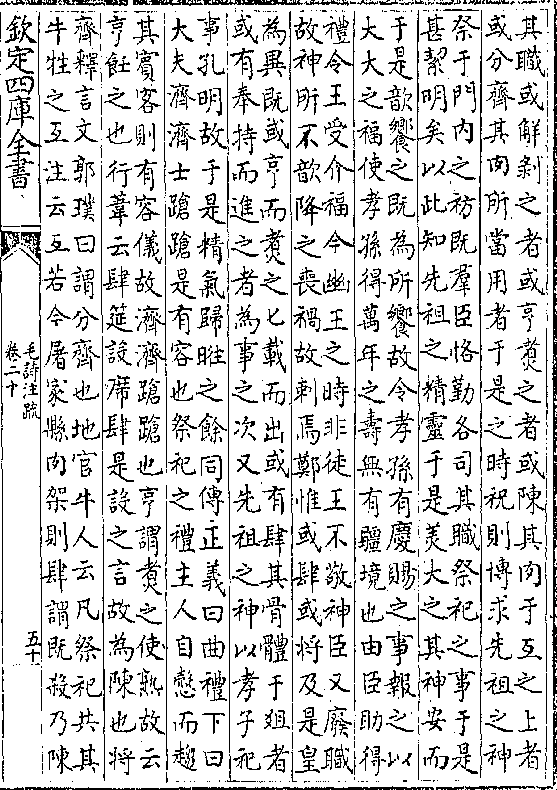 其職或解剝之者或亨煑之者或陳其肉于互之上者
或分齊其肉所當用者于是之時祝則博求先祖之神
祭于門内之祊既羣臣恪勤各司其職祭祀之事于是
甚絜明矣以此知先祖之精靈于是美大之其神安而
于是歆饗之既為所饗故令孝孫有慶賜之事報之以
大大之福使孝孫得萬年之壽無有疆境也由臣助得
禮令王受介福今幽王之時非徒王不敬神臣又廢職
故神所不歆降之喪禍故刺焉鄭惟或肆或將及是皇
為異既或亨而煑之匕載而出或有肆其骨體于俎者
或有奉持而進之者為事之次又先祖之神以孝子祀
事孔明故于是精氣歸暀之餘同傳正義曰曲禮下曰
大夫濟濟士蹌蹌是有容也祭祀之禮主人自慤而趨
其賓客則有容儀故濟濟蹌蹌也亨謂煑之使熟故云
亨飪之也行葦云肆筵設席肆是設之言故為陳也將
齊釋言文郭璞曰謂分齊也地官牛人云凡祭祀共其
牛牲之互注云互若今屠家縣肉架則肆謂既殺乃陳
欽定四庫全書
毛詩注疏
卷二十
五十